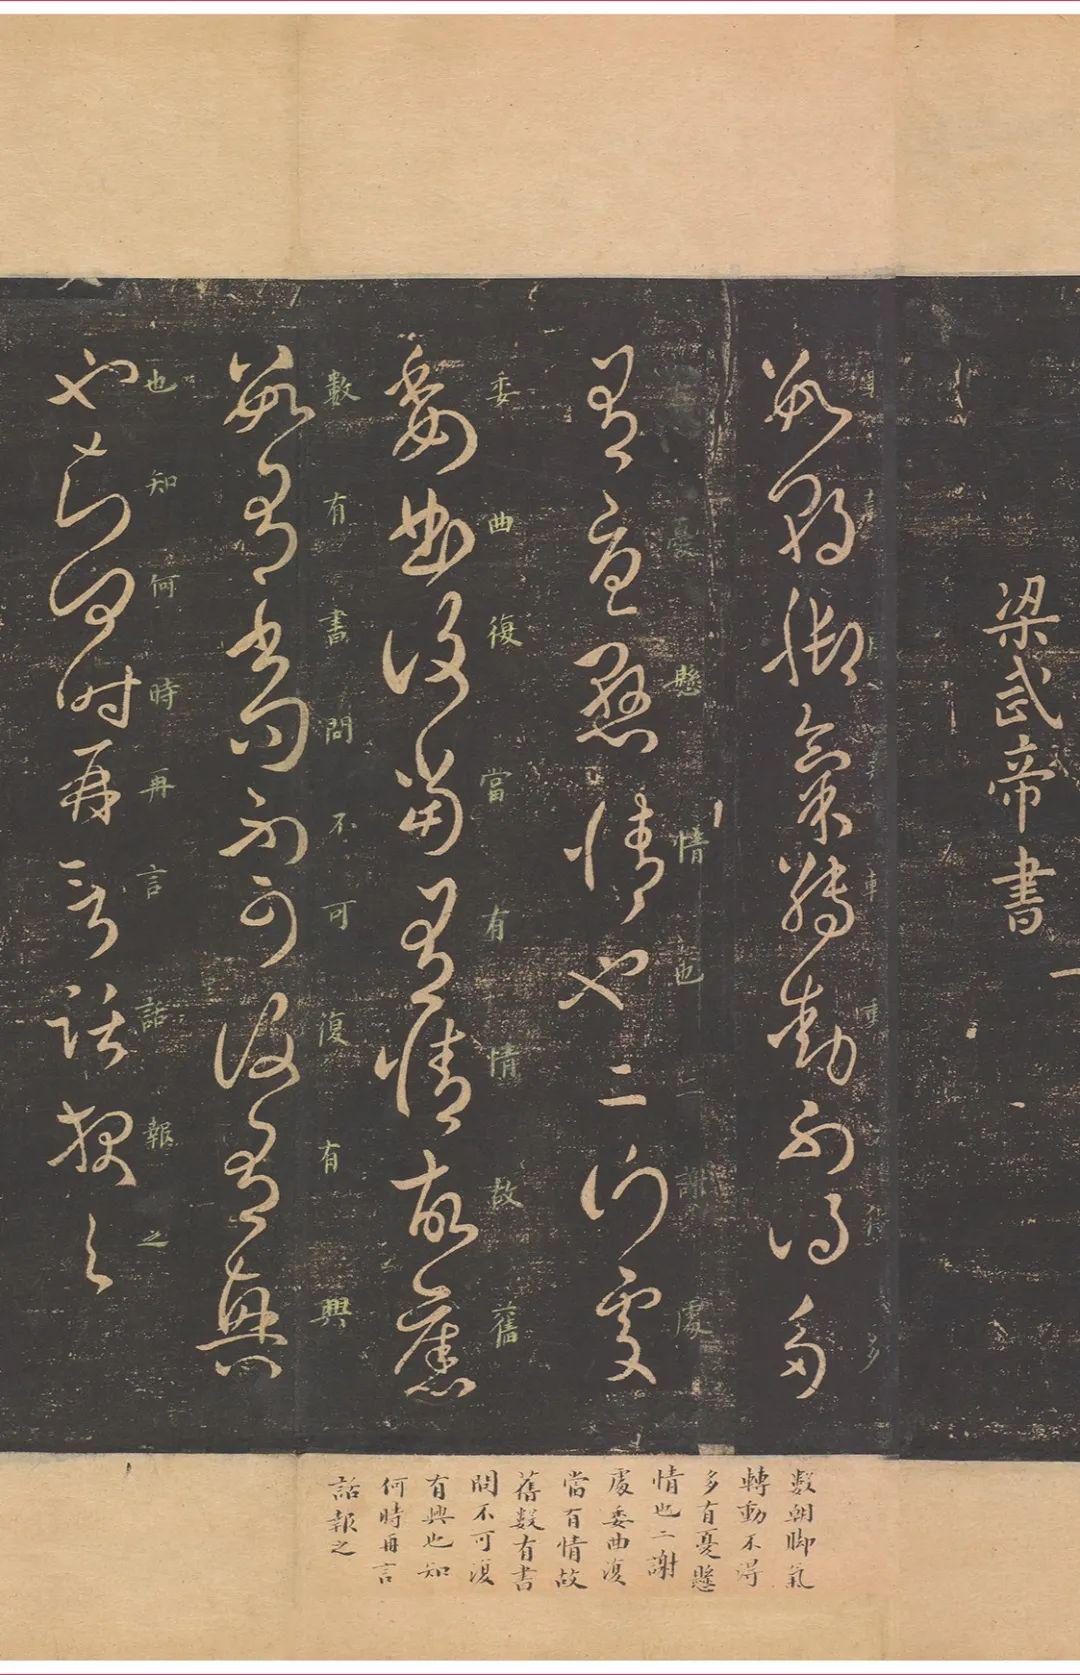 梁武帝書
數朝脚氣轉動不得多
多
有憂懸情也二謝處
憂懸情也二謝處
委曲復當有情故舊
委曲復當有情故舊
數有書問不可復有興
數有書問不可復有興
也知何時再言話報之
也知何時再言話報之
数朝脚氣
轉動不得
多有憂懸
情也二謝
處委曲復
當有情故
舊数有書
問不可復
有興也知
何時再言
話報之